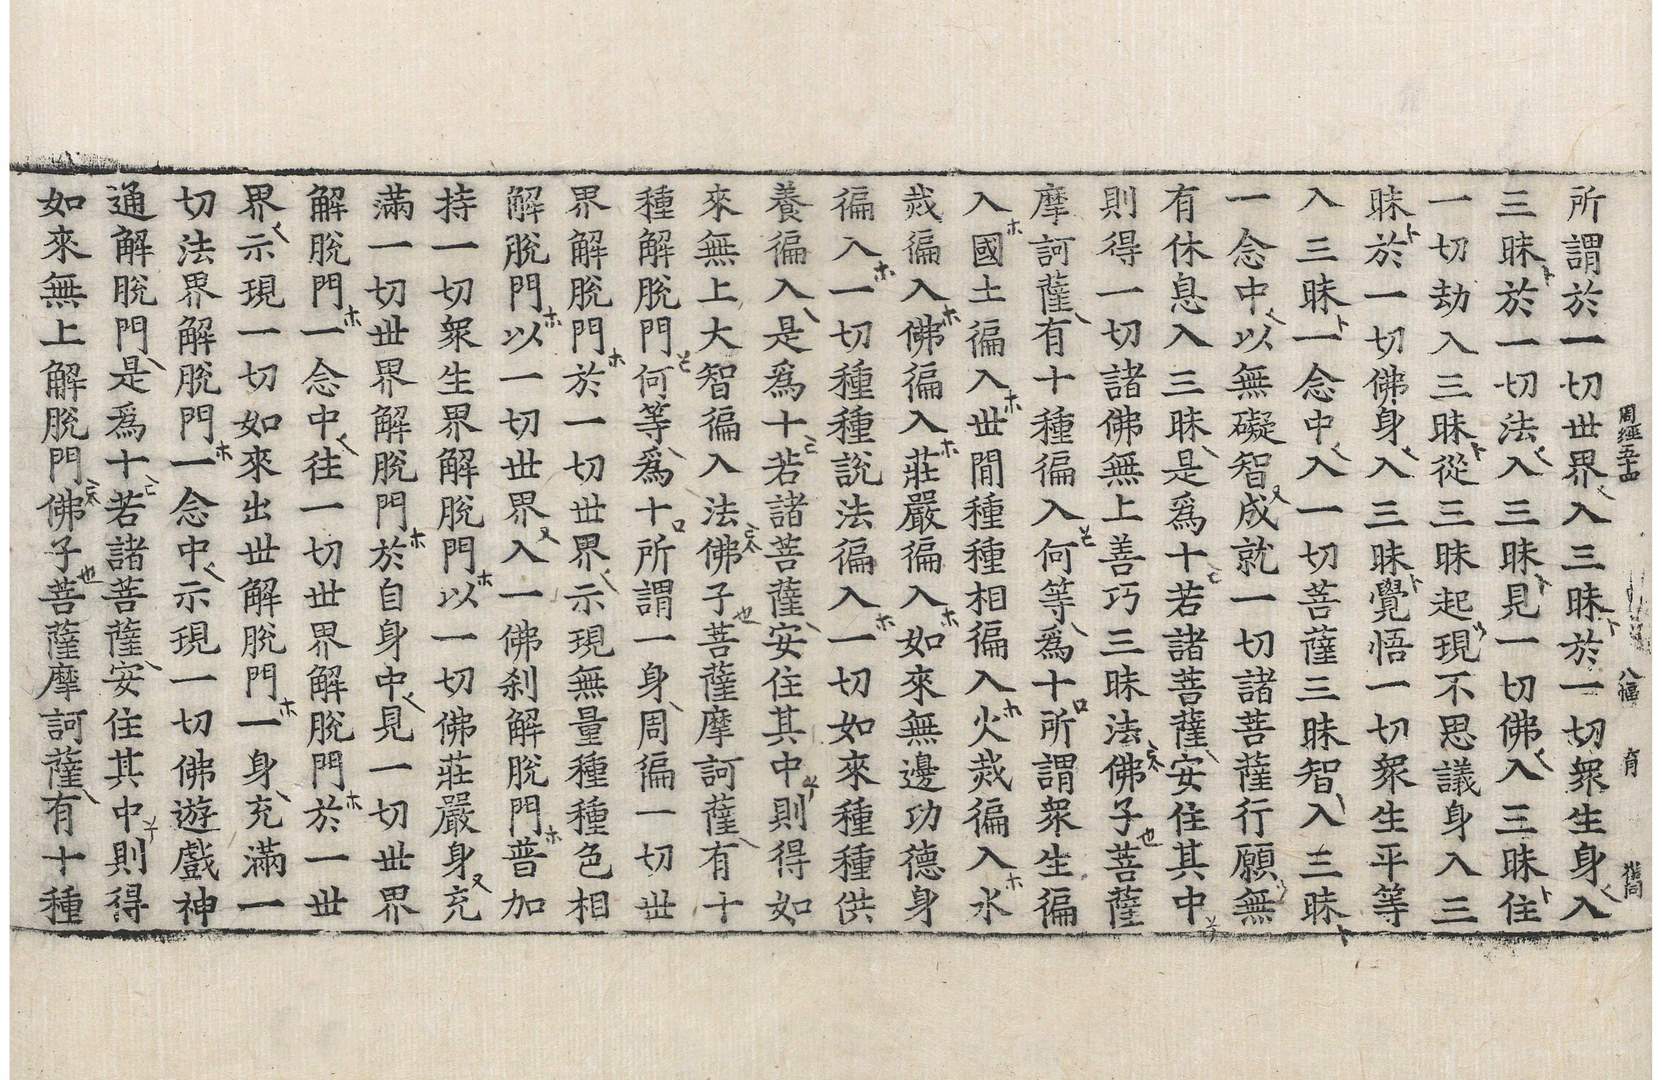 周經五十四 八幅 育
所謂於一切世界入三昧於一切衆生身入
三昧於一切法入三昧見一切佛入三昧住
一切劫入三昧從三昧起現不思議身入三
昧於一切佛身入三昧覺悟一切衆生平等
入三昧一念中入一切菩薩三昧智入三昧
一念中以無礙智成就一切諸菩薩行願無
有休息入三昧是爲十若諸菩薩安住其中
則得一切諸佛無上善巧三昧法佛子菩薩
摩訶薩有十種徧入何等爲十所謂衆生徧
入國土徧入世閒種種相徧入火烖徧入水
烖徧入佛徧入莊嚴徧入如來無邊功德身
徧入一切種種說法徧入一切如來種種供
養徧入是爲十若諸菩薩安住其中則得如
來無上大智徧入法佛子菩薩摩訶薩有十
種解脫門何等爲十所謂一身周徧一切世
界解脫門於一切世界示現無量種種色相
解脫門以一切世界入一佛刹解脫門普加
持一切衆生界解脫門以一切佛莊嚴身充
滿一切世界解脫門於自身中見一切世界
解脫門一念中往一切世界解脫門於一世
界示現一切如來出世解脫門一身充滿一
切法界解脫門一念中示現一切佛遊戲神
通解脫門是爲十若諸菩薩安住其中則得
如來無上解脫門佛子菩薩摩訶薩有十種